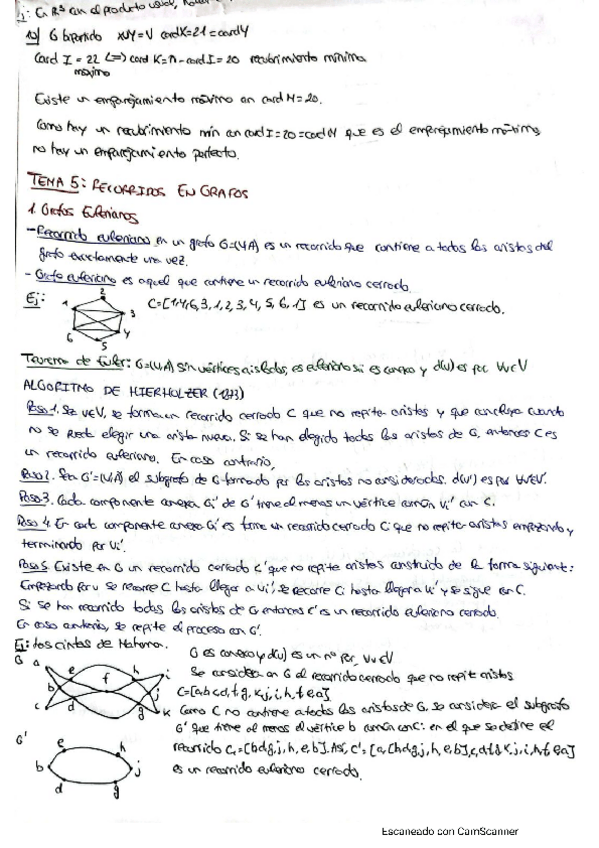 10) G bipartido XUY=V card X=21=card Y
Card I = 22 (=) card K=n-card I=20 recubrimiento mínimo
máximo
Existe un emparejamiento máximo con card M=20.
Como hay un recubrimiento min con card I=20=card M que es el emparejamiento máximo,
no hay un emparejamiento perfecto.
TEMA 5: RECORRIDOS EN GRAFOS
1. Grafos Eulerianos
-Recorrido euleriano en un grafo G=(V,A) es un recorrido que contiene a todas las aristas del
grafo exactamente una vez.
-Grafo euleriano es aquel que contiene un recorrido euleriano cerrado.
Ej: 1 2 3 4 5 6 C=[1,4,6,3,1,2,3,4,5,6,1] es un recorrido euleriano cerrado.
Teorema de Euler: G=(V,A) sin vértices aislados, es euleriano si es conexo y d(v) es par ∀v∈V
ALGORITMO DE HIERHOLZER (1873)
Paso 1. Sea v∈V, se forma un recorrido cerrado C que no repita aristas y que concluya cuando
no se pueda elegir una arista nueva. Si se han elegido todas las aristas de G, entonces C es
un recorrido euleriano. En caso contrario,
Paso 2. Sea G'=(V,A') el subgrafo de G formado por las aristas no consideradas. d(v') es par ∀v∈V.
Paso 3. Cada componente conexa Gi' de G' tiene al menos un vértice común vi' con C.
Paso 4. En cada componente conexa Gi' es forme un recorrido cerrado Ci que no repita aristas empezando y
terminando por vi'.
Paso 5. Existe en G un recorrido cerrado C' que no repite aristas construido de la forma siguiente:
Empezando por v se recorre C hasta llegar a vi', se recorre Ci hasta llegar a vi' y se sigue en C.
Si se han recorrido todas las aristas de G entonces C' es un recorrido euleriano cerrado.
En caso contrario, se repite el proceso con G'.
Ej: Las cintas de Mahoma.
G a b c d e f g h i j k
G es conexo y d(v) es un nº par, ∀v∈V
Se considera en G el recorrido cerrado que no repite aristas
C=[a,b,c,d,f,g,k,j,i,h,f,e,a]
Como C no contiene a todas las aristas de G, se considera el subgrafo
G' que tiene al menos el vértice b común con C: en el que se define el
recorrido C1=[b,d,g,j,h,e,b]. Así, C'=[a,b,d,g,j,h,e,b,c,d,f,g,k,j,i,h,f,e,a]
es un recorrido euleriano cerrado.
G' b e h j g d
Escaneado con CamScanner